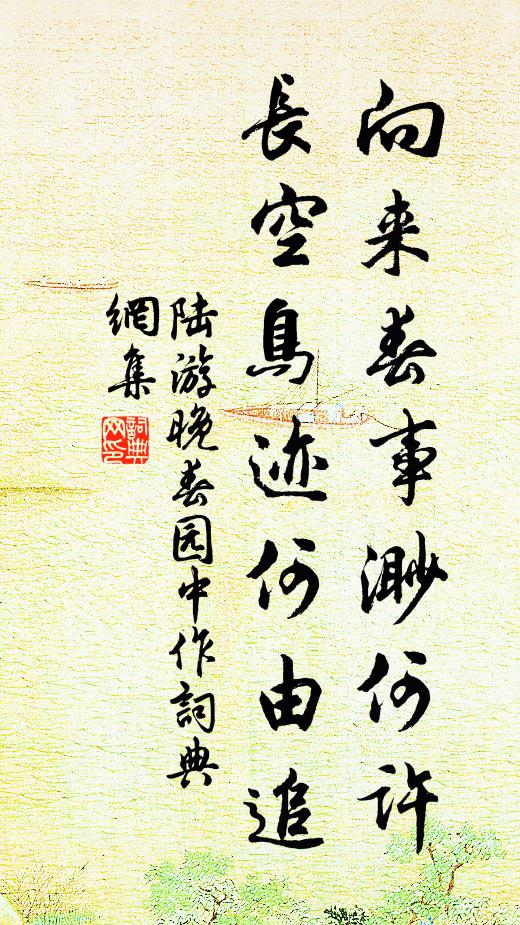 向来春事渺何许
長空鳥迹何由追
陆游晚春园中作詞典
網集
詞典
网印